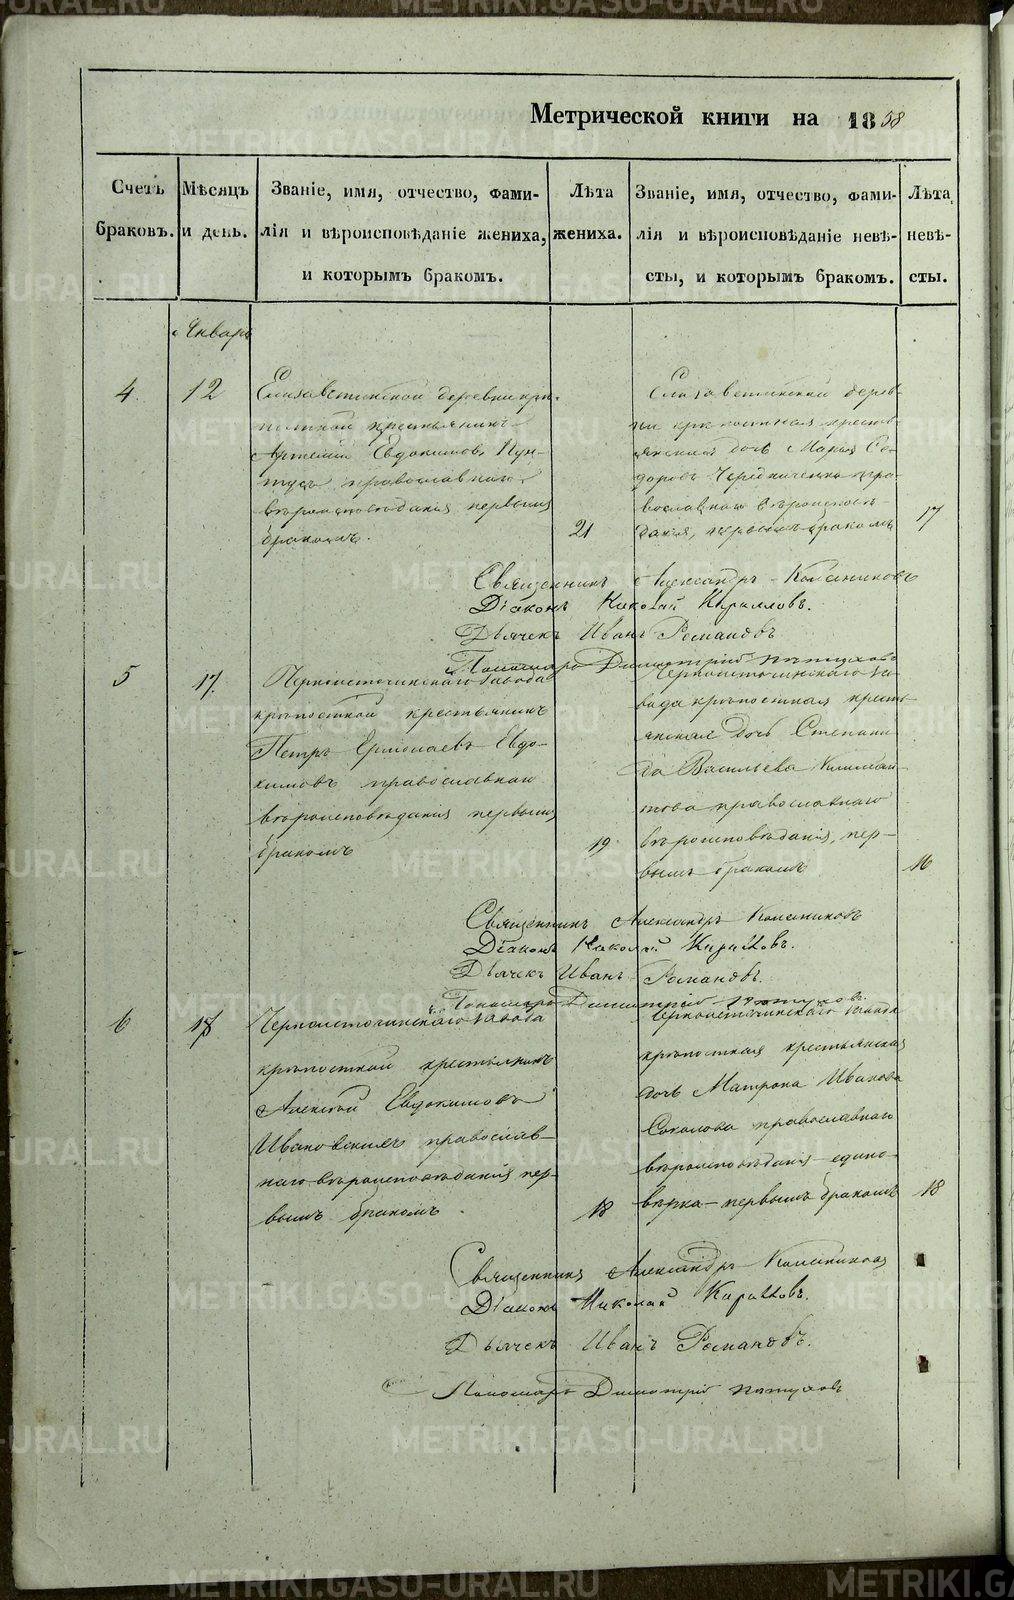 Метрической книги на 1858
Счетъ браковъ.
Мѣсяцъ и день.
Званіе, имя, отчество, фами-
лія и вѣроисповѣданіе жениха,
и которымъ бракомъ.
Лѣта жениха.
Званіе, имя, отчество, фами-
лія и вѣроисповѣданіе невѣ-
сты, и которымъ бракомъ.
Лѣта невѣ-
сты.
Январь
4
12
Елизаветинской деревни крѣ-
постной крестьянинъ
Артемій Евдокимовъ Пун-
тусъ православнаго
вѣроисповѣданія первымъ
бракомъ.
21
Елизаветинской дерев-
ни крѣпостная кресть-
янская дочь Марья Се-
дорова Чередниченко пра-
вославнаго вѣроисповѣ-
данія, первымъ бракомъ
17
Священникъ Александръ
Діаконъ Николай Кирилловъ.
Дьячекъ Иванъ Романовъ
Пономарь Димитрій Пѣтуховъ
5
17.
Черноисточинскаго завода
крѣпостной крестьянинъ
Петръ Ермолаевъ Евдо-
кимовъ православнаго
вѣроисповѣданія первымъ
бракомъ
19
Черноисточинскаго за-
вода крѣпостная кресть-
янская дочь Степани-
да Васильева
православнаго
вѣроисповѣданія, пер-
вымъ бракомъ
16
Священникъ Александръ
Діаконъ Николай Кирилловъ.
Дьячекъ Иванъ Романовъ.
Пономарь Димитрій Пѣтуховъ.
6
18
Черноисточинскаго завода
крѣпостной крестьянинъ
Алексѣй Евдокимовъ
Ивановскихъ православ-
наго вѣроисповѣданія пер-
вымъ бракомъ
18
Черноисточинскаго завода
крѣпостная крестьянская
дочь Матрона Иванова
Соколова православнаго
вѣроисповѣданія едино-
вѣрка первымъ бракомъ
18
Священникъ Александръ
Діаконъ Николай Кирилловъ.
Дьячекъ Иванъ Романовъ.
Пономарь Димитрій Пѣтуховъ
METRIKI.GASO-URAL.RU